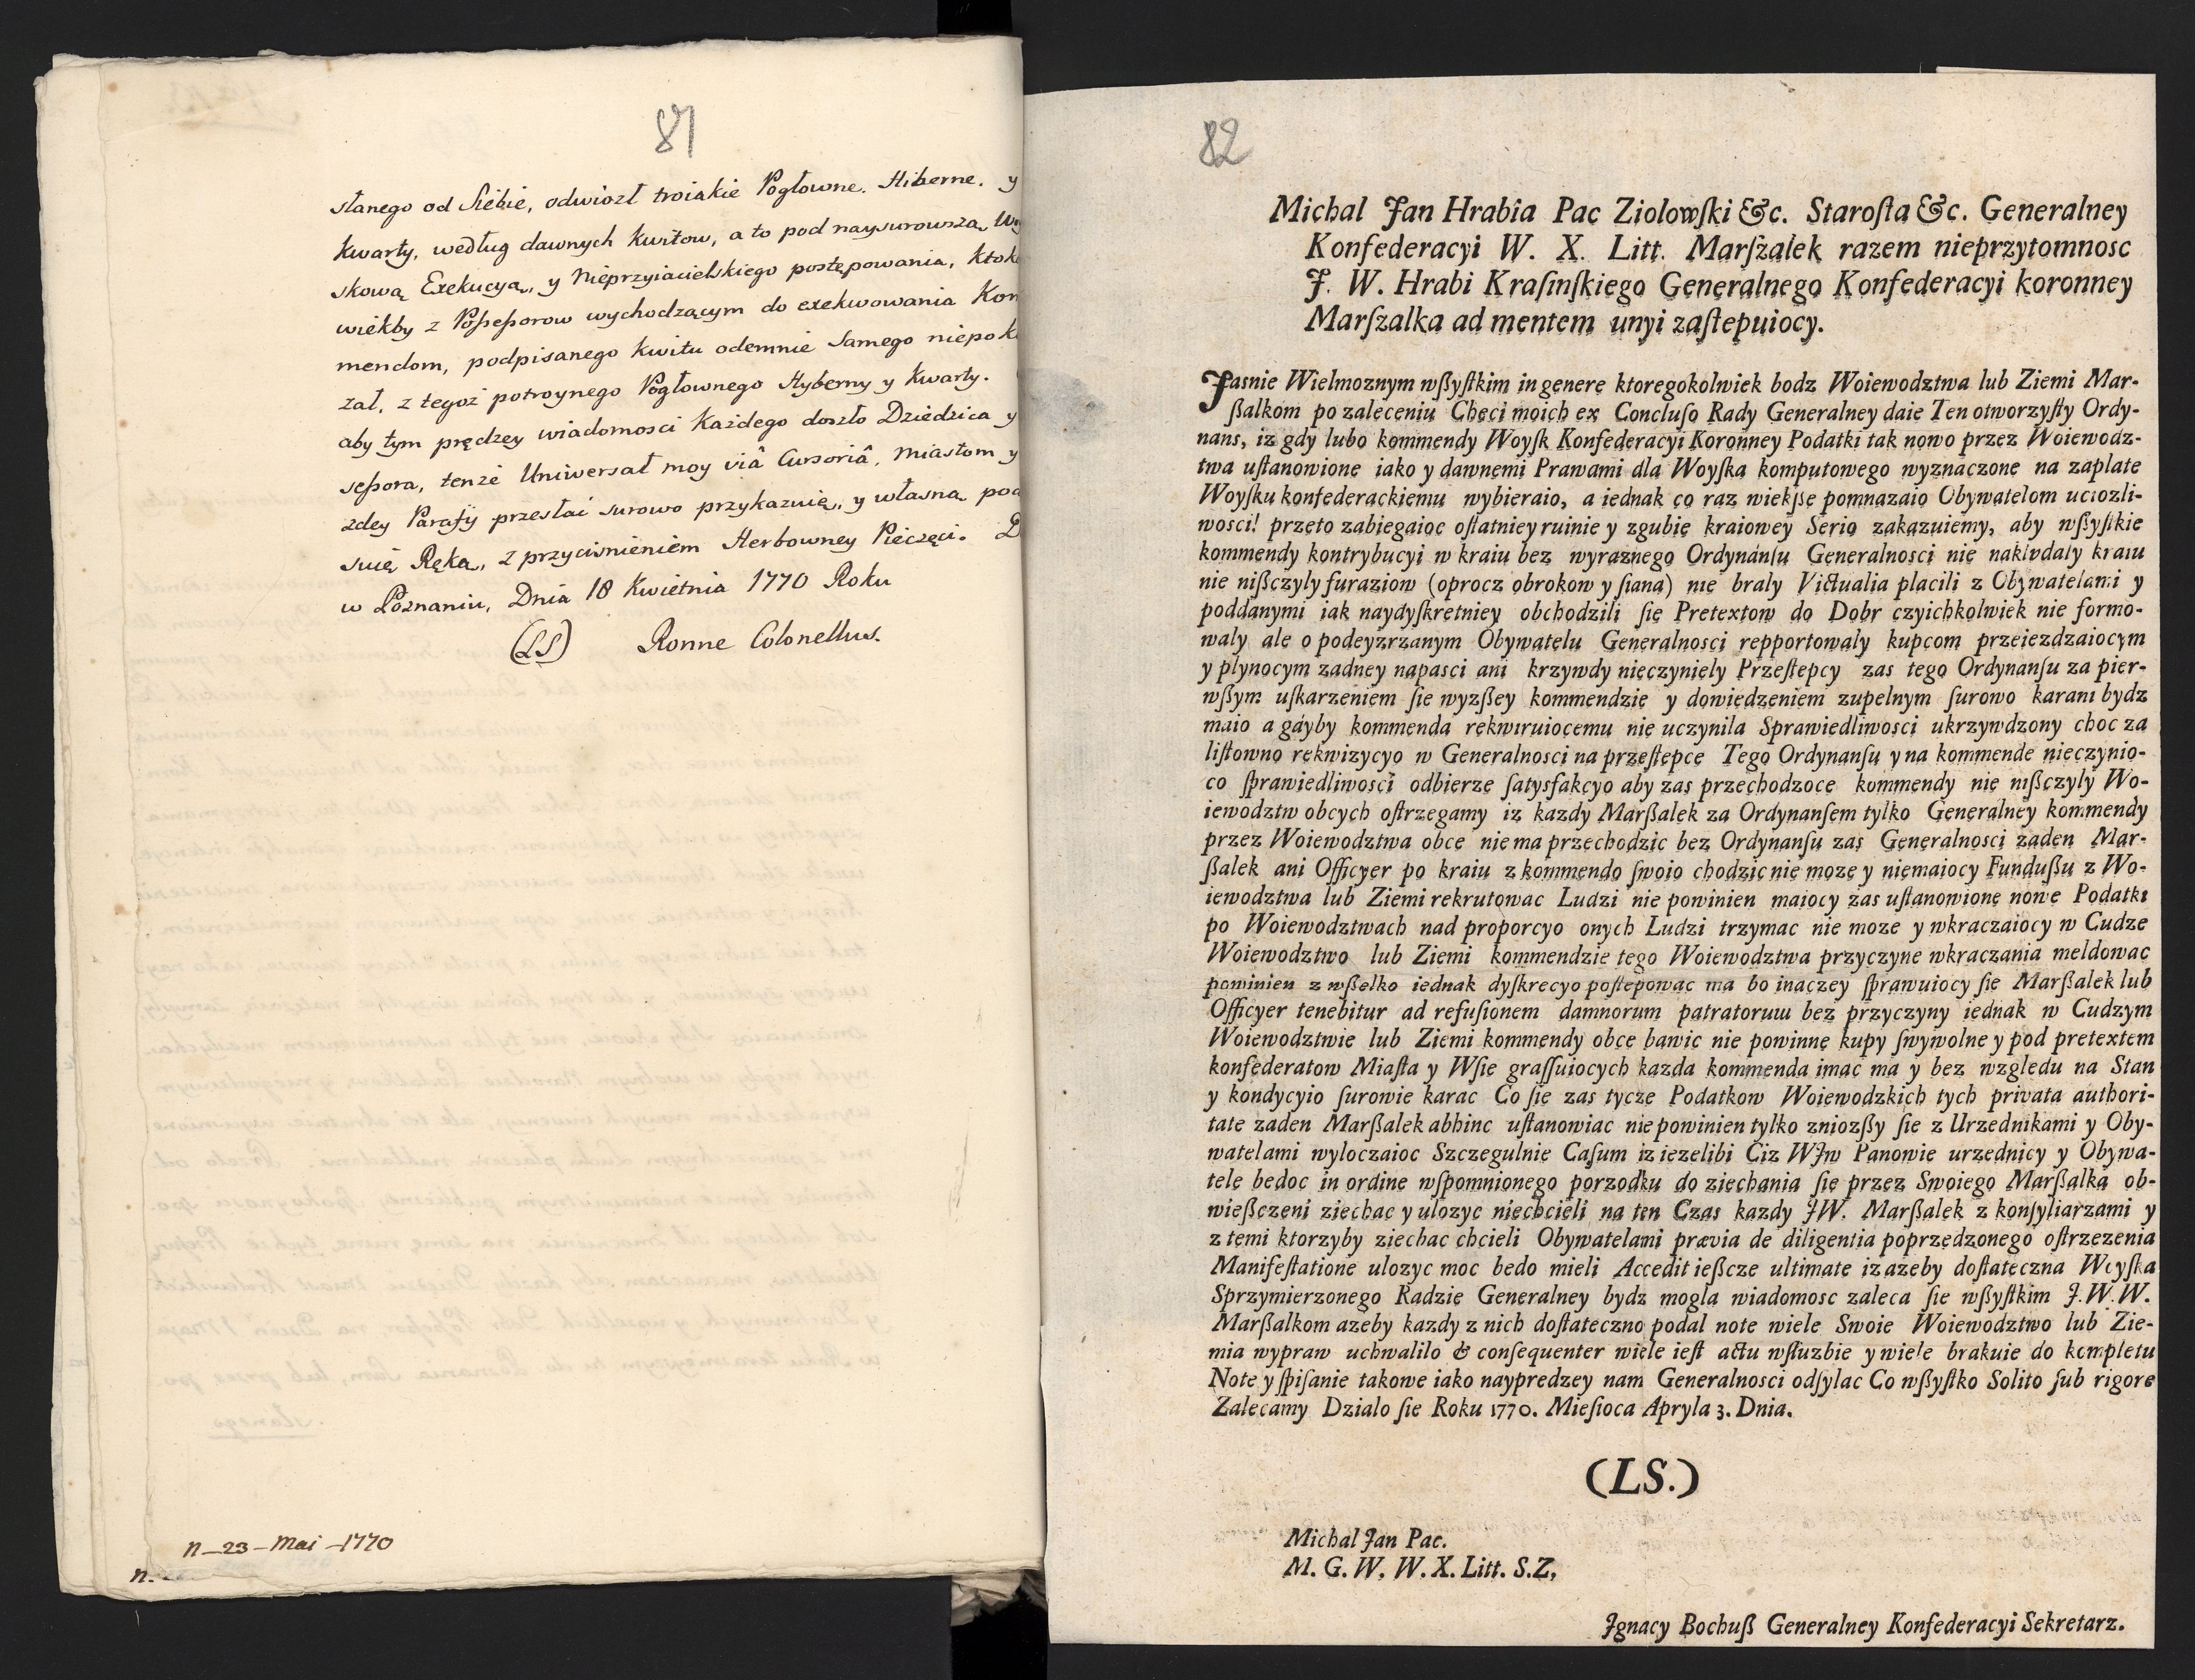 81
słanego od Siebie, odwiozł troiakie Pogłowne. Hiberne. y
Kwarty, według dawnych Kwitow, a to pod naysurowszą Woy
skową Exekucyą, y Nieprzyiacielskiego postępowania, Ktoko
wiekby z Poßeßorow wychodzącym do exekwowania Kom
mendom, podpisanego Kwitu odemnie Samego niepoka
zał, z tegoż potroynego Pogłownego Hyberny y Kwarty.
aby tym prędzey wiadomosci Każdego doszło Dziedzica y
seßora, tenże Uniwersał moy viâ Cursoriâ, Miastom y
żdey Parafÿ przesłać surowo przykazuię, y własną pod
suię Ręką, z przyciśnieniem Herbowney Pieczęci. D
w Poznaniu, Dnia 18 Kwietnia 1770 Roku
(LS) Ronne Colonellus.
n-23-Mai-1770
n.
82
Michal Jan Hrabia Pac Ziolowſki &c. Staroſta &c. Generalney
Konfederacyi W. X. Litt. Marſzalek razem nieprzytomnosc
J. W. Hrabi Kraſinſkiego Generalnego Konfederacyi koronney
Marſzalka ad mentem unyi zaſtepuiocy.
Jasnie Wielmoznym wßyſtkim in genere ktoregokolwiek bodz Woiewodztwa lub Ziemi Mar-
ßalkom po zaleceniu Checi moich ex Concluſo Rady Generalney daie Ten otworzyſty Ordy-
nans, iz gdy lubo kommendy Woyſk Konfederacyi Koronney Podatki tak nowo przez Woiewodz-
twa uſtanowione iako y dawnemi Prawami dla Woyſka komputowego wyznaczone na zaplate
Woyſku konfederackiemu wybieraio, a iednak co raz wiekſze pomnazaio Obywatelom uciozli-
wosci! przeto zabiegaioc oſtatniey ruinie y zgubie kraiowey Serio zakazuiemy, aby wßyſtkie
kommendy kontrybucyi w kraiu bez wyraznego Ordynanſu Generalnosci nie nakladaly kraiu
nie nißczyly furaziow (oprocz obrokow y ſiana) nie braly Victualia placili z Obywatelami y
poddanymi iak naydyſkretniey obchodzili ſie Pretextow do Dobr czyichkolwiek nie formo-
waly ale o podeyzrzanym Obywatelu Generalnosci repportowaly kupcom przeiezdzaiocym
y plynocym zadney napasci ani krzywdy nieczyniely Przeſtepcy zas tego Ordynanſu za pier-
wßym uſkarzeniem ſie wyzßey kommendzie y dowiedzeniem zupelnym ſurowo karani bydz
maio a gdyby kommenda rekwiruiocemu nie uczynila Sprawiedliwosci ukrzywdzony choc za
liſtowno rekwizycyo w Generalnosci na przeſtepce Tego Ordynanſu y na kommende nieczynio-
co ſprawiedliwosci odbierze ſatysfakcyo aby zas przechodzoce kommendy nie nißczyly Wo-
iewodztw obcych oſtrzegamy iz kazdy Marßalek za Ordynanſem tylko Generalney kommendy
przez Woiewodztwa obce nie ma przechodzic bez Ordynanſu zas Generalnosci zaden Mar-
ßalek ani Officyer po kraiu z kommendo ſwoio chodzic nie moze y niemaiocy Fundußu z Wo-
iewodztwa lub Ziemi rekrutowac Ludzi nie powinien maiocy zas uſtanowione nowe Podatki
po Woiewodztwach nad proporcyo onych Ludzi trzymac nie moze y wkraczaiocy w Cudze
Woiewodztwo lub Ziemi kommendzie tego Woiewodztwa przyczyne wkraczania meldowac
powinien z wßelko iednak dyſkrecyo poſtepowac ma bo inaczey ſprawuiocy ſie Marßalek lub
Officyer tenebitur ad refuſionem damnorum patratorum bez przyczyny iednak w Cudzym
Woiewodztwie lub Ziemi kommendy obce bawic nie powinne kupy ſwywolne y pod pretextem
konfederatow Miaſta y Wſie graſſuiocych kazda kommenda imac ma y bez wzgledu na Stan
y kondycyio ſurowie karac Co ſie zas tycze Podatkow Woiewodzkich tych privata authori-
tate zaden Marßalek abhinc uſtanowiac nie powinien tylko zniozßy ſie z Urzednikami y Oby-
watelami wyloczaioc Szczegulnie Caſum iz iezelibi Ciz WJw Panowie urzednicy y Obywa-
tele bedoc in ordine wſpomnionego porzodku do ziechania ſie przez Swoiego Marßalka ob-
wießczeni ziechac y ulozyc niechcieli na ten Czas kazdy JW. Marßalek z konſyliarzami y
z temi ktorzyby ziechac chcieli Obywatelami prævia de diligentia poprzedzonego oſtrzezenia
Manifeſtatione ulozyc moc bedo mieli Accedit ießcze ultimate iz azeby doſtateczna Woyſka
Sprzymierzonego Radzie Generalney bydz mogla wiadomosc zaleca ſie wßyſtkim J. W. W.
Marßalkom azeby kazdy z nich doſtateczno podal note wiele Swoie Woiewodztwo lub Zie-
mia wypraw uchwalilo & conſequenter wiele ieſt actu wſluzbie y wiele brakuie do kompletu
Note y ſpiſanie takowe iako naypredzey nam Generalnosci odſylac Co wßyſtko Solito ſub rigore
Zalecamy Dzialo ſie Roku 1770. Mieſioca Apryla 3. Dnia.
(LS.)
Michal Jan Pac.
M. G. W. W. X. Litt. S.Z,
Jgnacy Bochuß Generalney Konfederacyi Sekretarz.